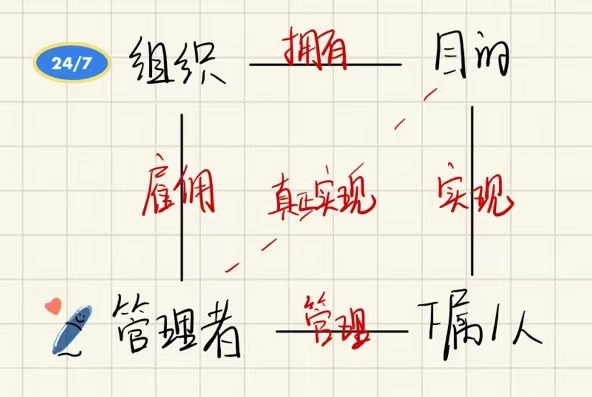 24/7 组织 拥有 目的
雇佣 真正实现 实现
管理者 管理 下属/人